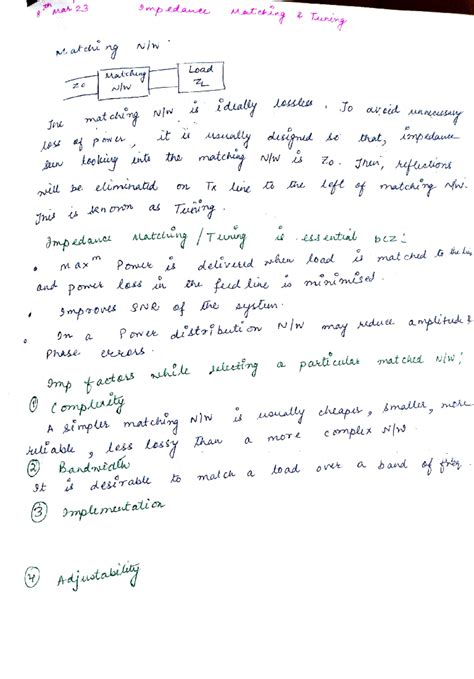 8th Mar 23 Impedance Matching & Tuning
Matching N/W
Z0 Matching N/W Load ZL
The matching N/W is ideally lossless. To avoid unnecessary
loss of power, it is usually designed so that, impedance
seen looking into the matching N/W is Z0. Then, reflections
will be eliminated on Tx line to the left of matching N/W.
This is known as Tuning.
Impedance Matching / Tuning is essential bcz:
• Maxm Power is delivered when load is matched to the line
and power loss in the feed line is minimised.
• Improves SNR of the system.
• In a Power distribution N/W may reduce amplitude &
Phase errors.
Imp factors while selecting a particular matched N/W:
① Complexity
A simpler matching N/W is usually cheaper, smaller, more
reliable, less lossy than a more complex N/W.
② Bandwidth
It is desirable to match a load over a band of freq.
③ Implementation
④ Adjustability